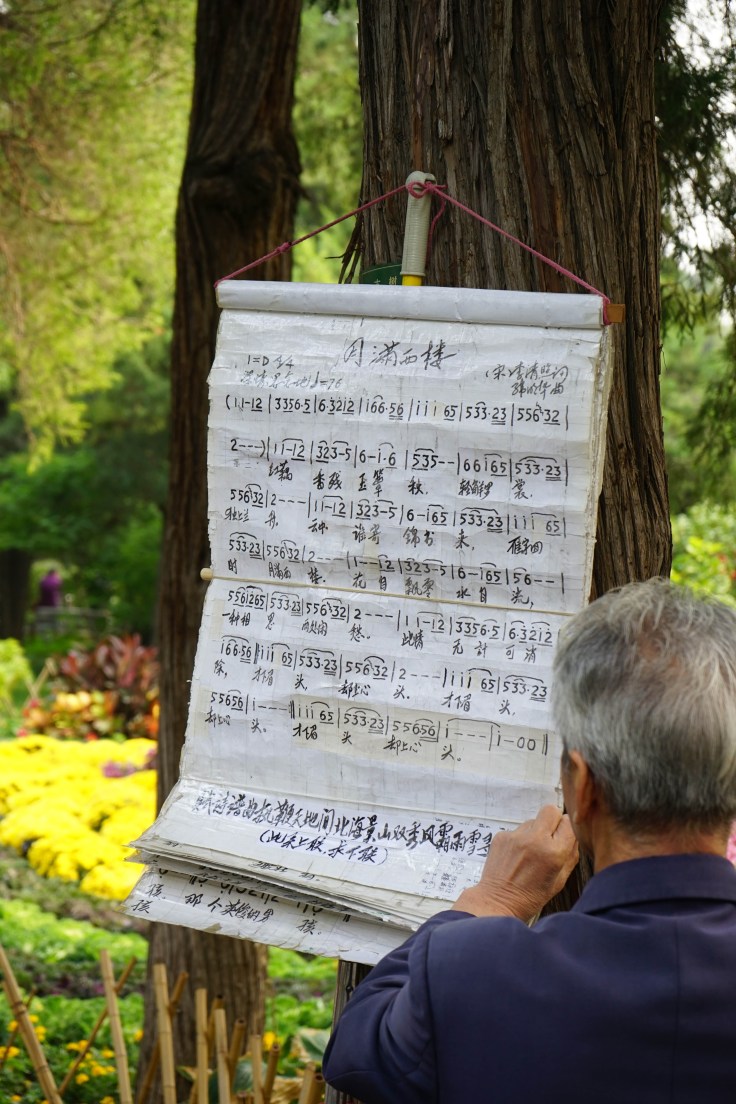 月满西楼
1=D 4/4
(宋·李清照词
♩=76
曲
(1 1 1-12 | 3 3 5 6·5 | 6·3 2 1 2 | i 6 6·5 6 | i i i 6 5 | 5 3 3·2 3 | 5 5 6 3 2 |
2---) | 1 1 1-12 | 3 2 3-5 | 6-i·6 | 5 3 5-- | 6 6 i 6 5 | 5 3 3·2 3 |
红藕 香残 玉簟 秋. 轻解罗 裳.
5 5 6 3 2 | 2---- | 1 1 1-12 | 3 2 3-5 | 6-i 6 5 | 5 3 3·2 3 | i i i 6 5 |
独上兰 舟. 云中 谁寄 锦书 来, 雁字回
5 3 3·2 3 | 5 5 6 3 2 | 2---- | 1--1 2 | 3 2 3-5 | 6-i 6 5 | 5 6-- |
时 月满西 楼. 花自 飘零 水自 流,
5 5 6 i 2 6 5 | 5 3 3·2 3 | 5 5 6 3 2 | 2---- | 1 1 1-12 | 3 3 5 6·5 | 6·3 2 1 2 |
一种相 思 两处闲 愁. 此情 无计 可消
i 6 6·5 6 | i i i 6 5 | 5 3 3·2 3 | 5 5 6 3 2 | 2---- | i i i 6 5 | 5 3 3·2 3 |
除, 才下眉 头, 却上心 头. 才下眉 头,
5 5 6 5 6 | i---- | i i i 6 5 | 5 3 3·2 3 | 5 5 6 5 6 | i---- | i-0 0 ‖
却上心 头. 才下眉 头 却上心 头.
天地间北海景山双秀风霜雨雪
孩. 那个 男 孩.
孩